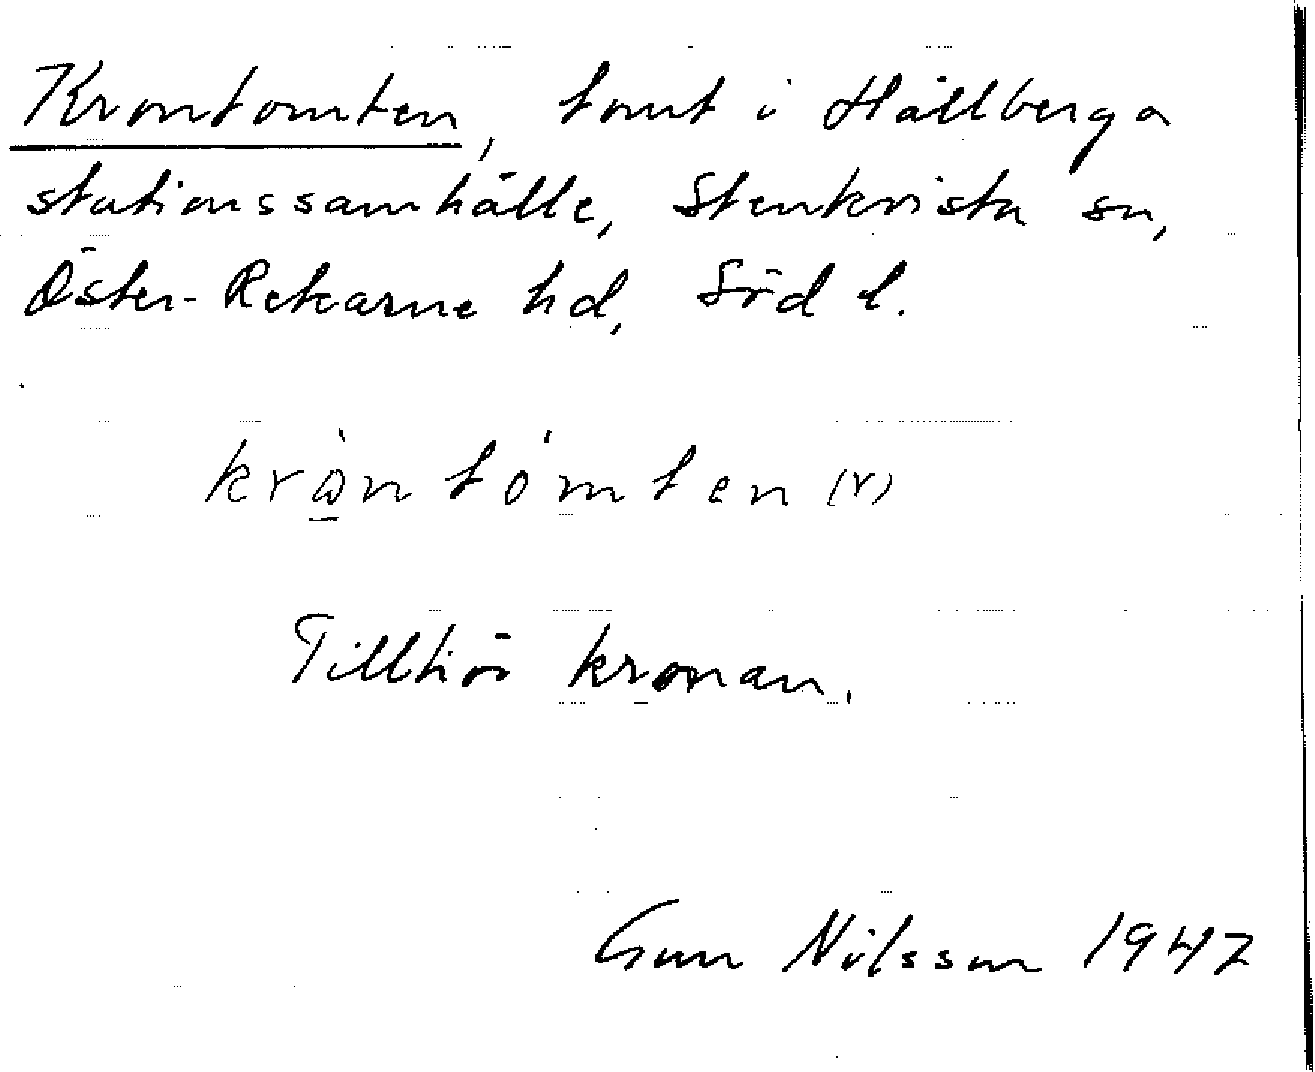 Krontomten, tomt i Hållberga
stationssamhälle, Stenkvista sn,
Öster-Rekarne hd, Söd l.
krò̠ntómten (r)
Tillhör kronan.
Gun Nilsson 1947